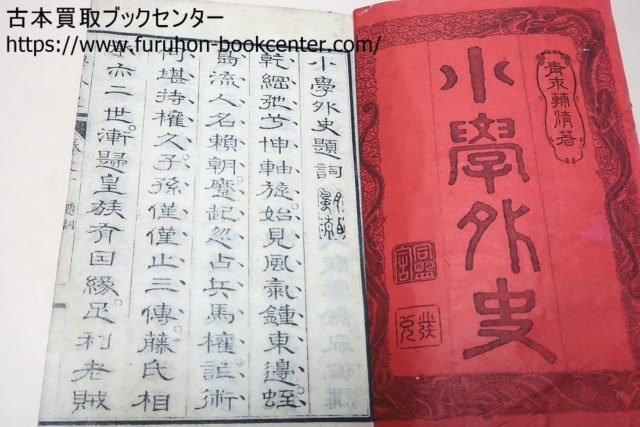 古本買取ブックセンター
https://www.furuhon-bookcenter.com/
青木輔清著
小學外史
小學外史題詞
乾綱弛兮坤軸旋、始見風氣鍾東邊。蛭
島流人名賴朝、蹷起忽占兵馬權。詐術
何堪持權久、子孫僅僅止三傳。藤氏相
承亦二世、漸歸皇族有因緣。足利老賊
題詞